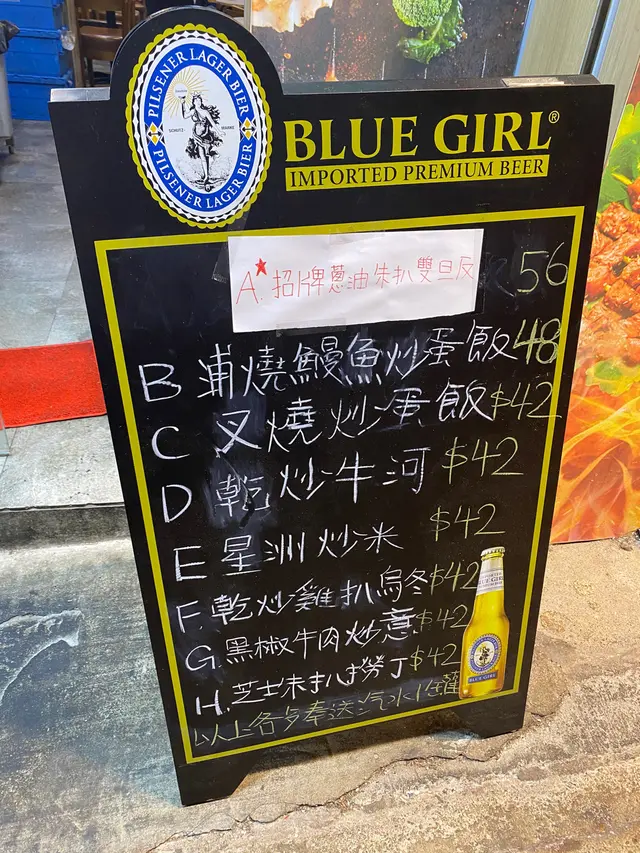 PILSENER LAGER BIER
PILSENER LAGER BIER
BLUE GIRL®
IMPORTED PREMIUM BEER
A.★招牌蔥油朱扒雙旦反 56
B 浦燒鰻魚炒蛋飯 48
C 叉燒炒蛋飯 $42
D 乾炒牛河 $42
E 星洲炒米 $42
F. 乾炒雞扒烏冬 $42
G. 黑椒牛肉炒意 $42
H. 芝士未扒撈丁 $42
以上各多奉送汽水1罐
BLUE GIRL